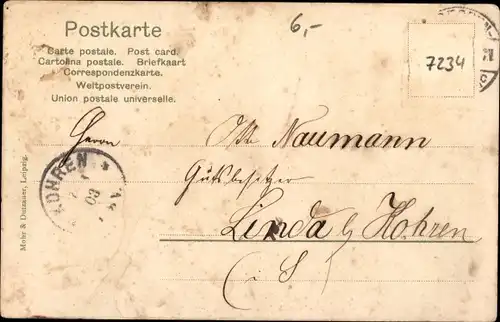 Postkarte
6,-
Carte postale. Post card.
Cartolina postale. Briefkaart
Correspondenzkarte.
Weltpostverein.
Union postale universelle.
7234
Herrn
Otto Naumann
Gutsbesitzer
Linda b/ Kohren
i. S.
KOHREN
Mohr & Dutzauer, Leipzig.